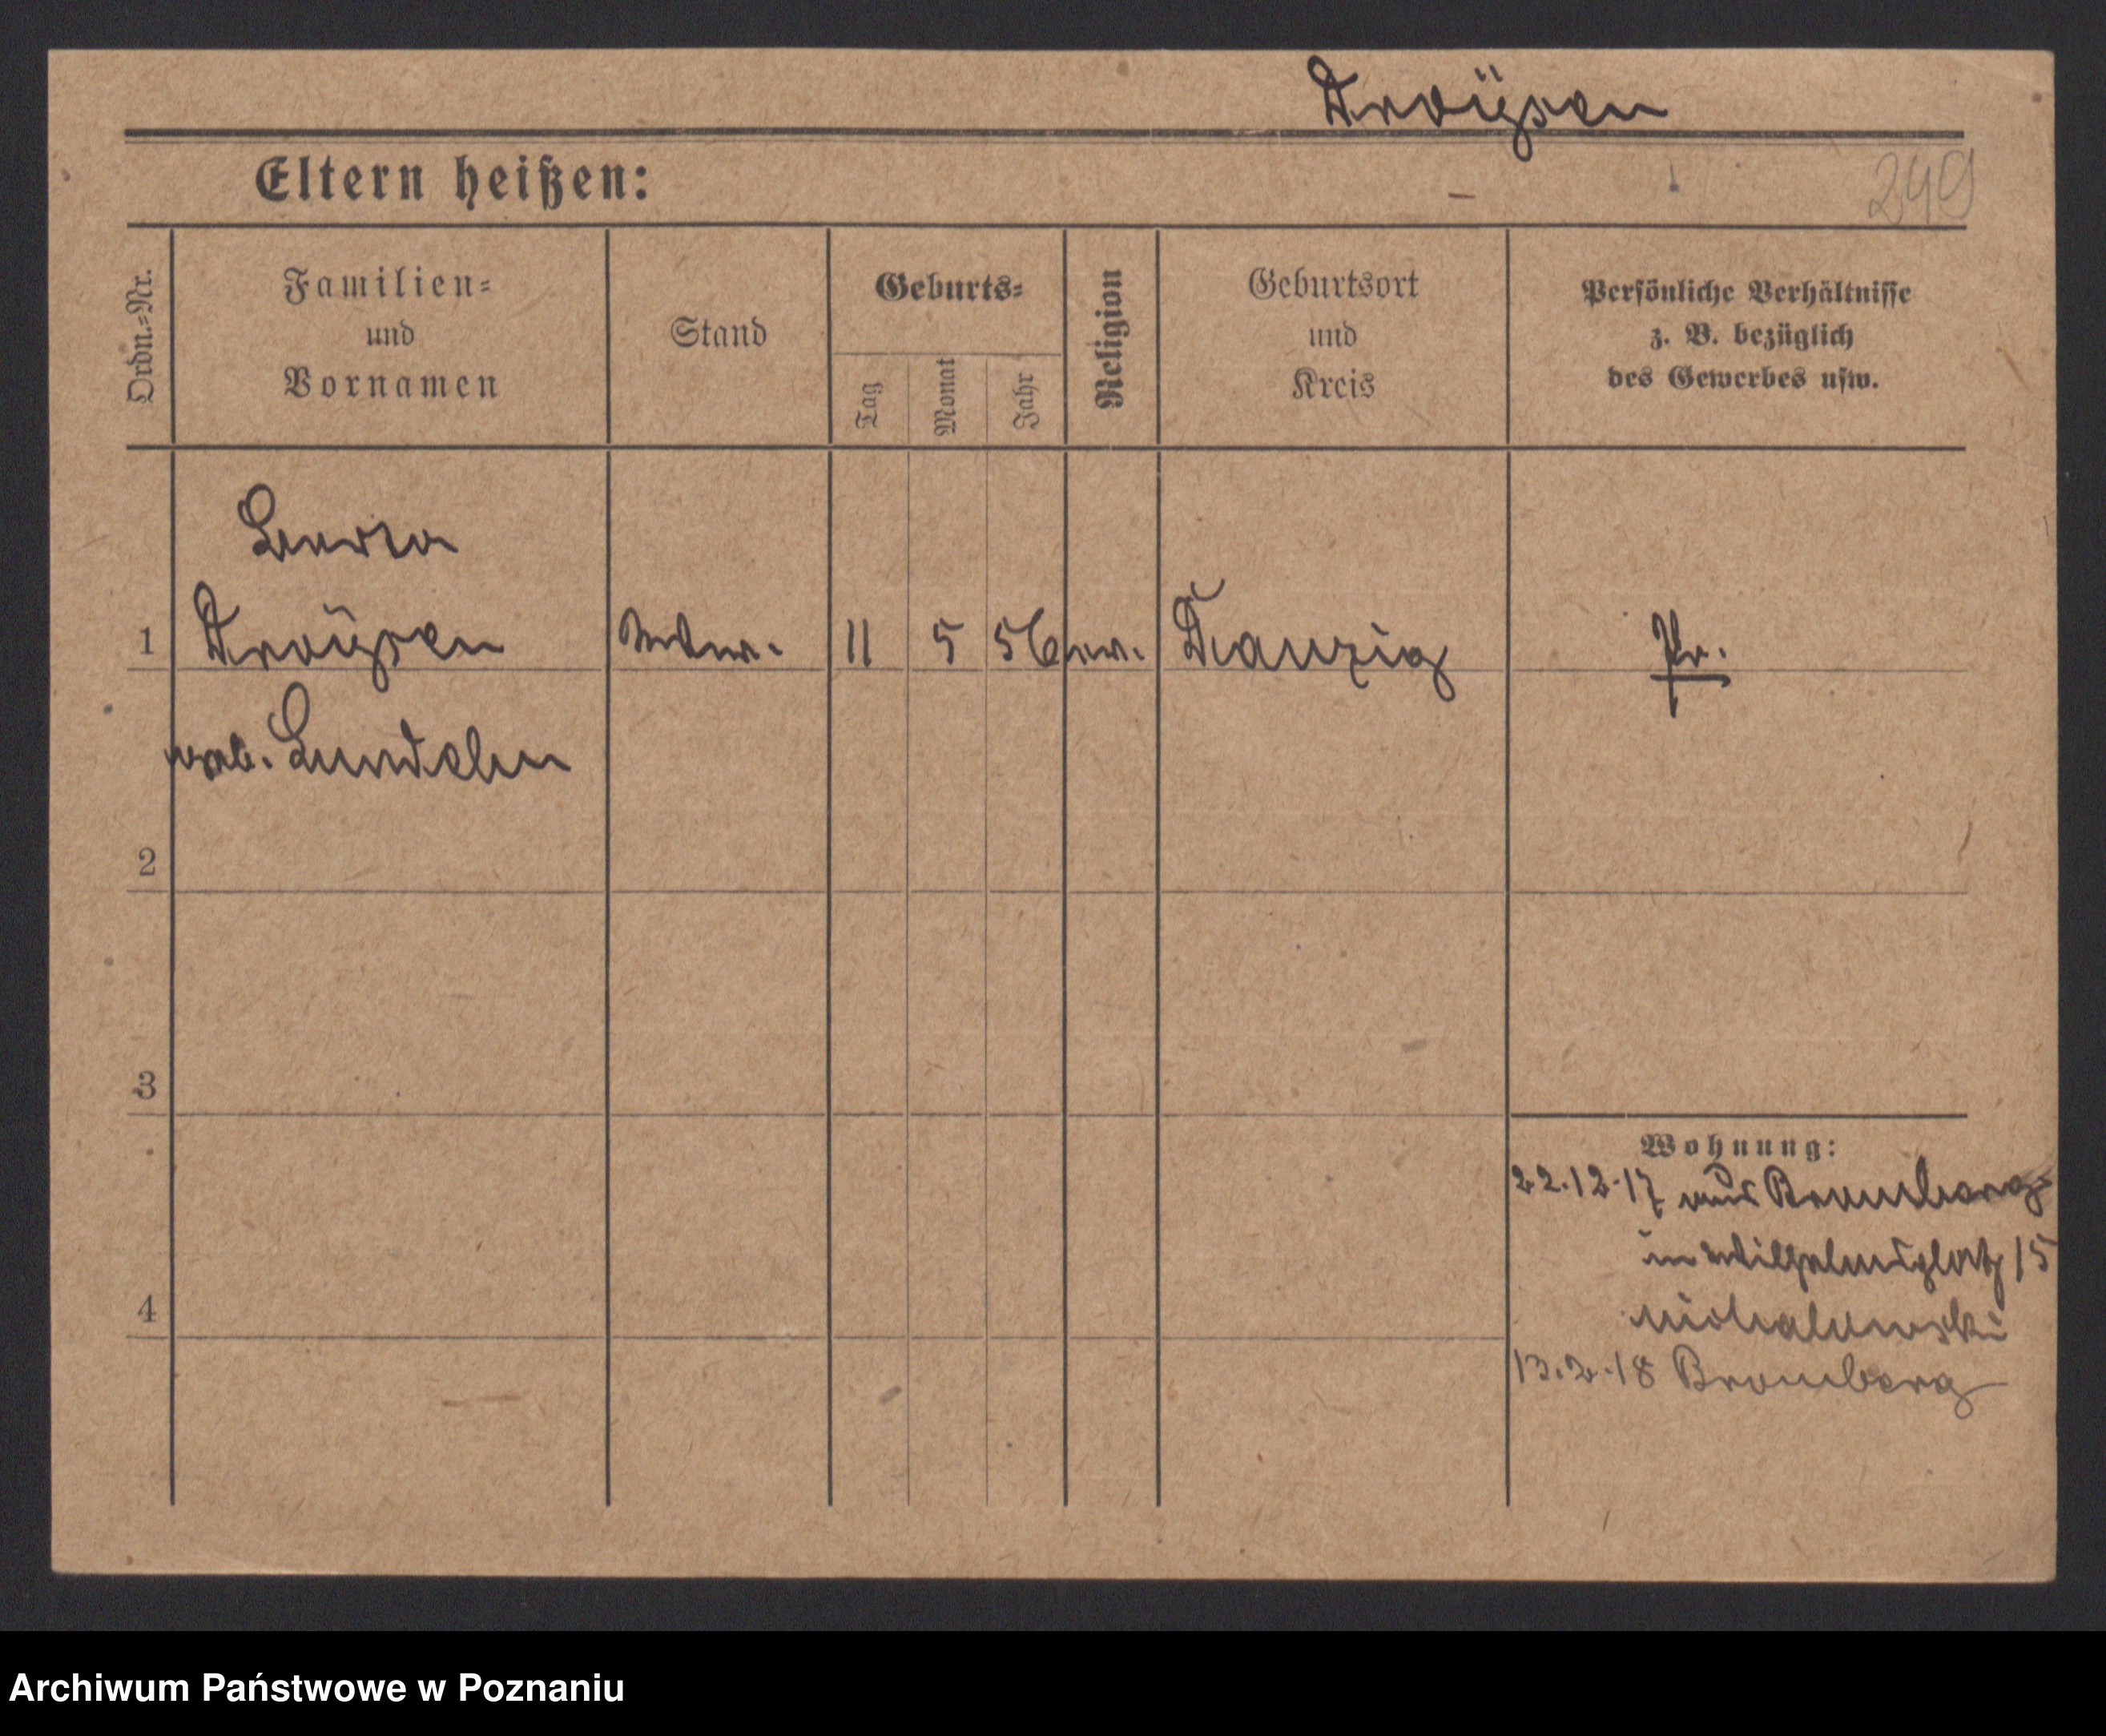 Droÿsen
Eltern heißen:
249
Ordn.=Nr.
Familien=
und
Vornamen
Stand
Geburts=
Tag
Monat
Jahr
Religion
Geburtsort
und
Kreis
Persönliche Verhältnisse
z. B. bezüglich
des Gewerbes usw.
1
Droÿsen
Wtw.
11
5
56
ev.
Danzig
Pr.
geb.
2
3
4
Wohnung:
22.12.17 aus Bromberg
in Wilhelmsplatz 15
Michalowski
13.2.18 Bromberg
Archiwum Państwowe w Poznaniu